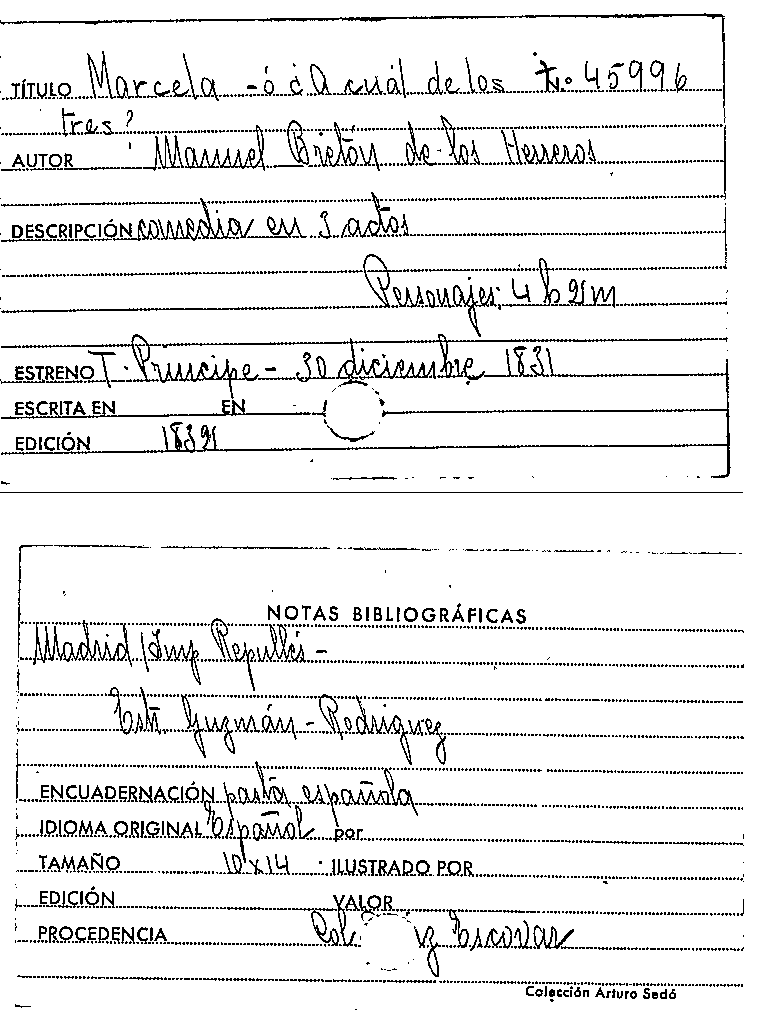 TÍTULO Marcela - ó ¿A cuál de los Nº 45996
tres?
AUTOR Manuel Bretón de los Herreros
DESCRIPCIÓN comedia en 3 actos
Personajes: 4 h 2 m
ESTRENO T. Principe - 30 diciembre 1831
ESCRITA EN EN
EDICIÓN 1832
NOTAS BIBLIOGRÁFICAS
Madrid / Imp Repullés -
Estr. Guzmán - Rodriguez
ENCUADERNACIÓN pasta española
IDIOMA ORIGINAL Español por
TAMAÑO 10 x 14 ILUSTRADO POR
EDICIÓN VALOR
PROCEDENCIA Col. Escovar
Colección Arturo Sedó